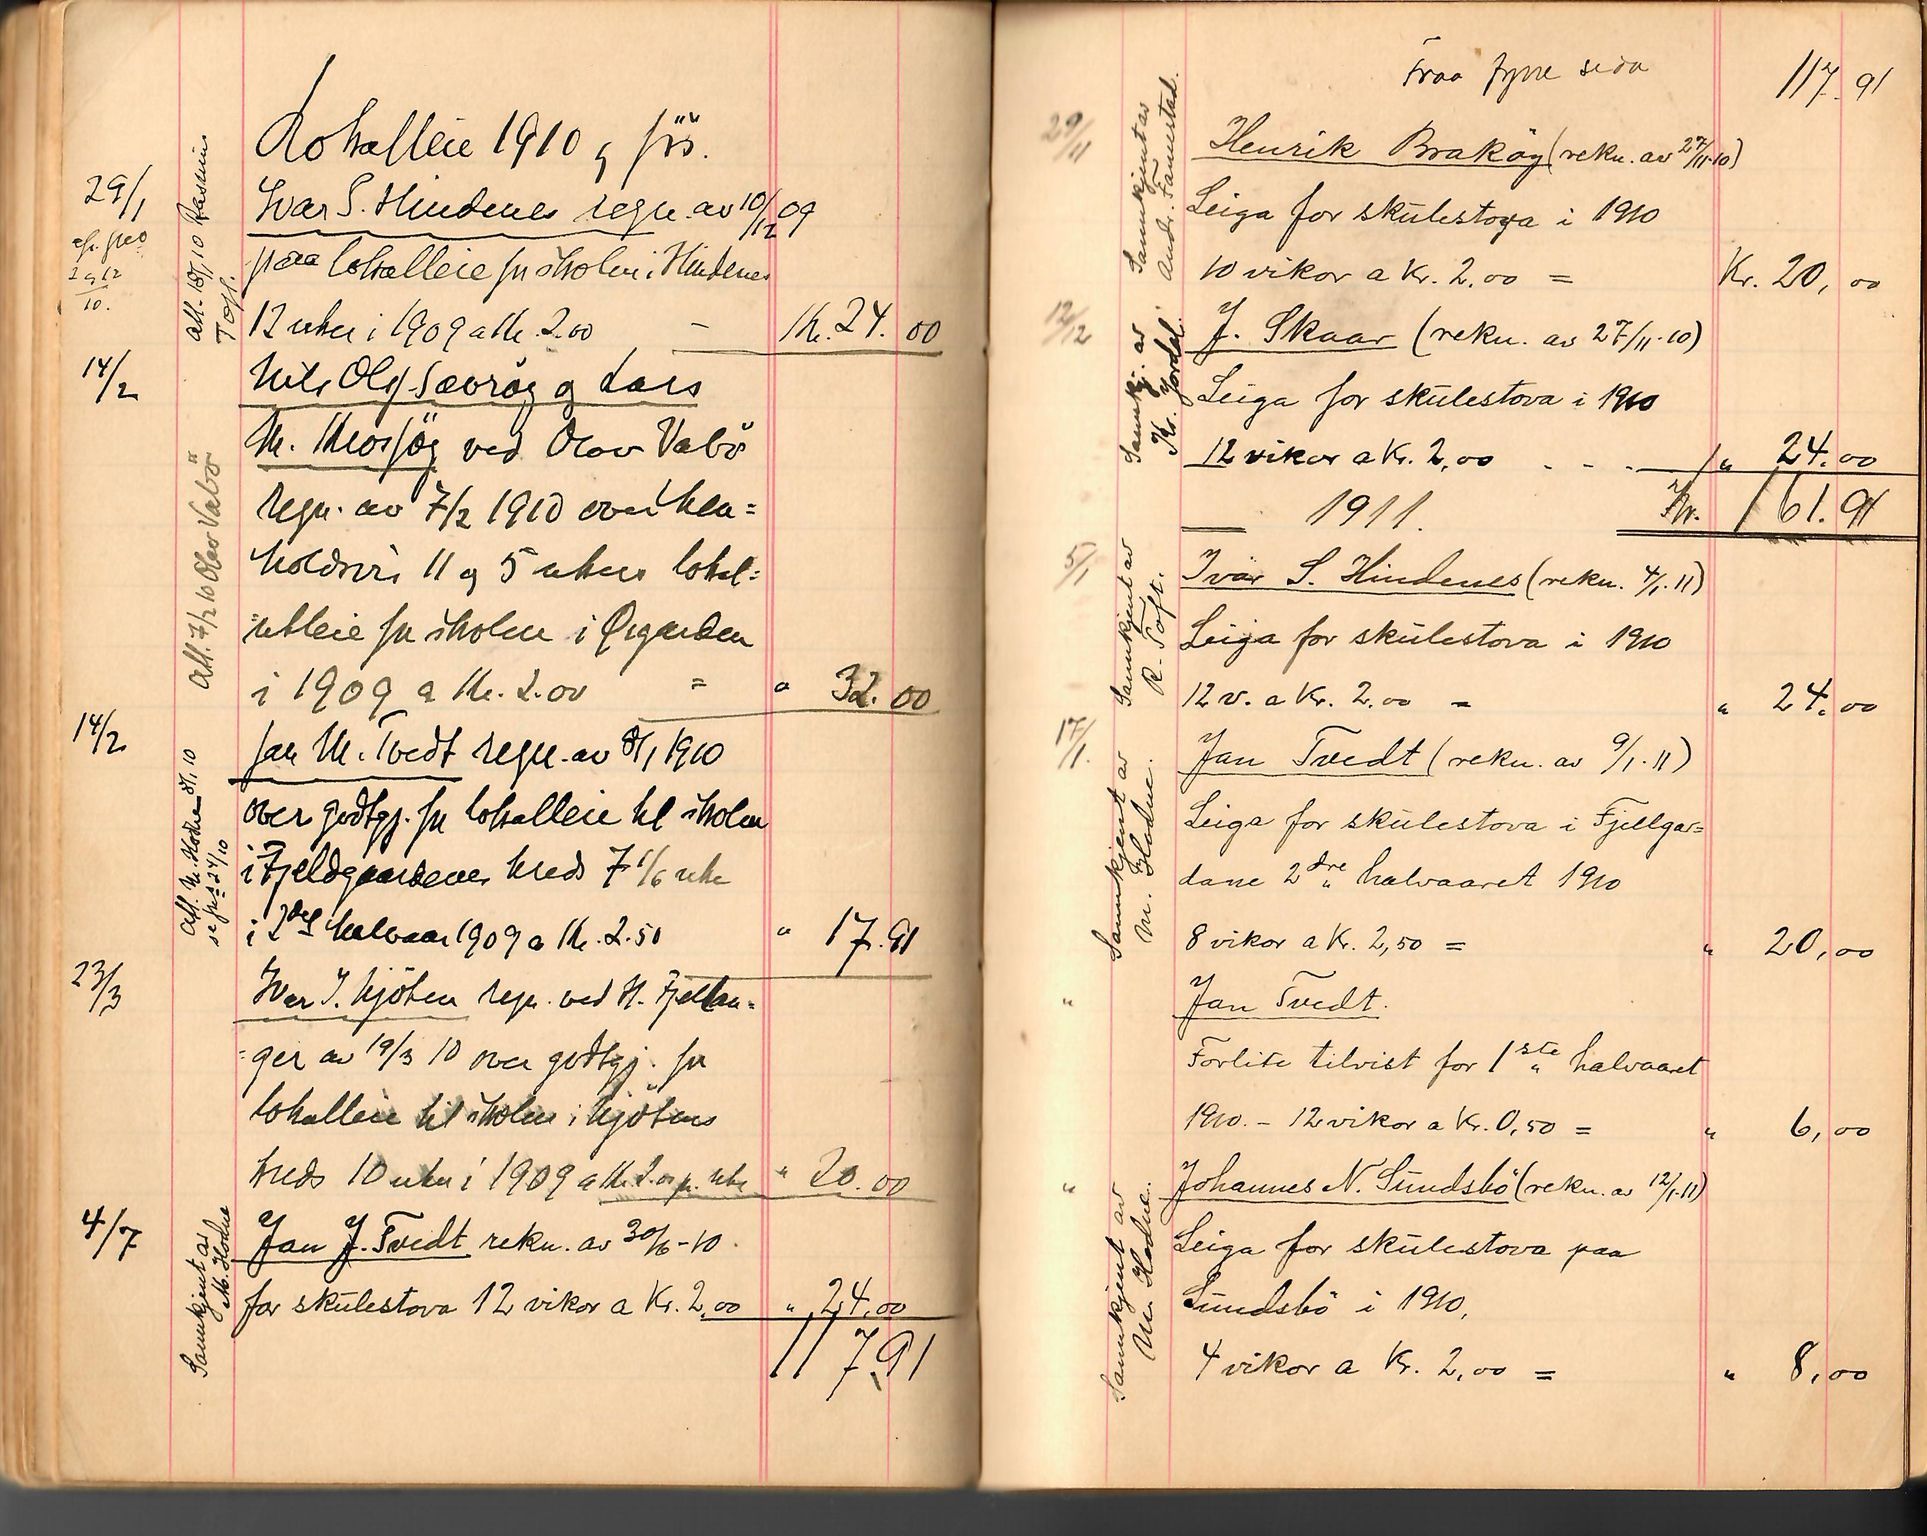 Lokalleie 1910 og för.
29/1
Att. 18/1 10 Rasmus
Toft.
Ivar S. Hindenes regn. av 10/12 09
paa lokalleie for skolen i Hindenes
12 uker i 1909 a Kr. 2.00 – Kr. 24.00
14/2
Att. 7/2 10 Olav Vabö
Nils Olss. Sævröy og Lars
M. Krossöy ved Olav Vabö
regn. av 7/2 1910 over hen=
holdsvis 11 og 5 ukers lokal=
utleie for skolen i Øygarden
i 1909 a Kr. 2.00 = " 32.00
14/2
Att. M. Hodne 8/1 10
Jan M. Tvedt regn. av 8/1 1910
over godtgj. for lokalleie til skolen
i Fjeldgaardenes kreds 7 1/6 uke
i 2det halvaar 1909 a Kr. 2.50 " 17.91
23/3
Ivar I. Kjöten regn. ved H. Fjellan=
=ger av 19/3 10 over godtgj. for
lokalleie til skolen i Kjötens
kreds 10 uker i 1909 a Kr. 2.00 pr. uke " 20.00
4/7
Samnkjent av
M. Hodne
Jan J. Tvedt rekn. av 30/6-10
for skulestova 12 vikor a Kr. 2.00 " 24.00
117.91
Fraa fyrre sida 117.91
29/11
Samnkjent av
Andr. Famestad.
Henrik Braköy (rekn. av 27/11-10)
Leiga for skulestova i 1910
10 vikor a Kr. 2.00 = Kr. 20,00
12/12
Samnkj. av
Kr. Jordal.
J. Skaar (rekn. av 27/11-10)
Leiga for skulestova i 1910
12 vikor a Kr. 2,00 - - - " 24.00
1911. Kr. 161.91
5/1
Samnkjent av
R. Toft.
Ivar S. Hindenes (rekn. 4/1.11)
Leiga for skulestova i 1910
12 v. a Kr. 2.00 = " 24.00
17/1.
Samnkjent av
M. Hodne.
Jan Tvedt (rekn. av 9/1.11)
Leiga for skulestova i Fjellgar=
dane 2dre halvaaret 1910
8 vikor a Kr. 2,50 = " 20,00
" Jan Tvedt.
Forlite tilvist for 1ste halvaaret
1910. – 12 vikor a Kr. 0,50 = " 6,00
"
Samnkjent av
M. Hodne.
Johannes N. Sundsbö (rekn. av 12/1.11)
Leiga for skulestova paa
Sundsbö i 1910,
4 vikor a Kr. 2,00 = " 8,00